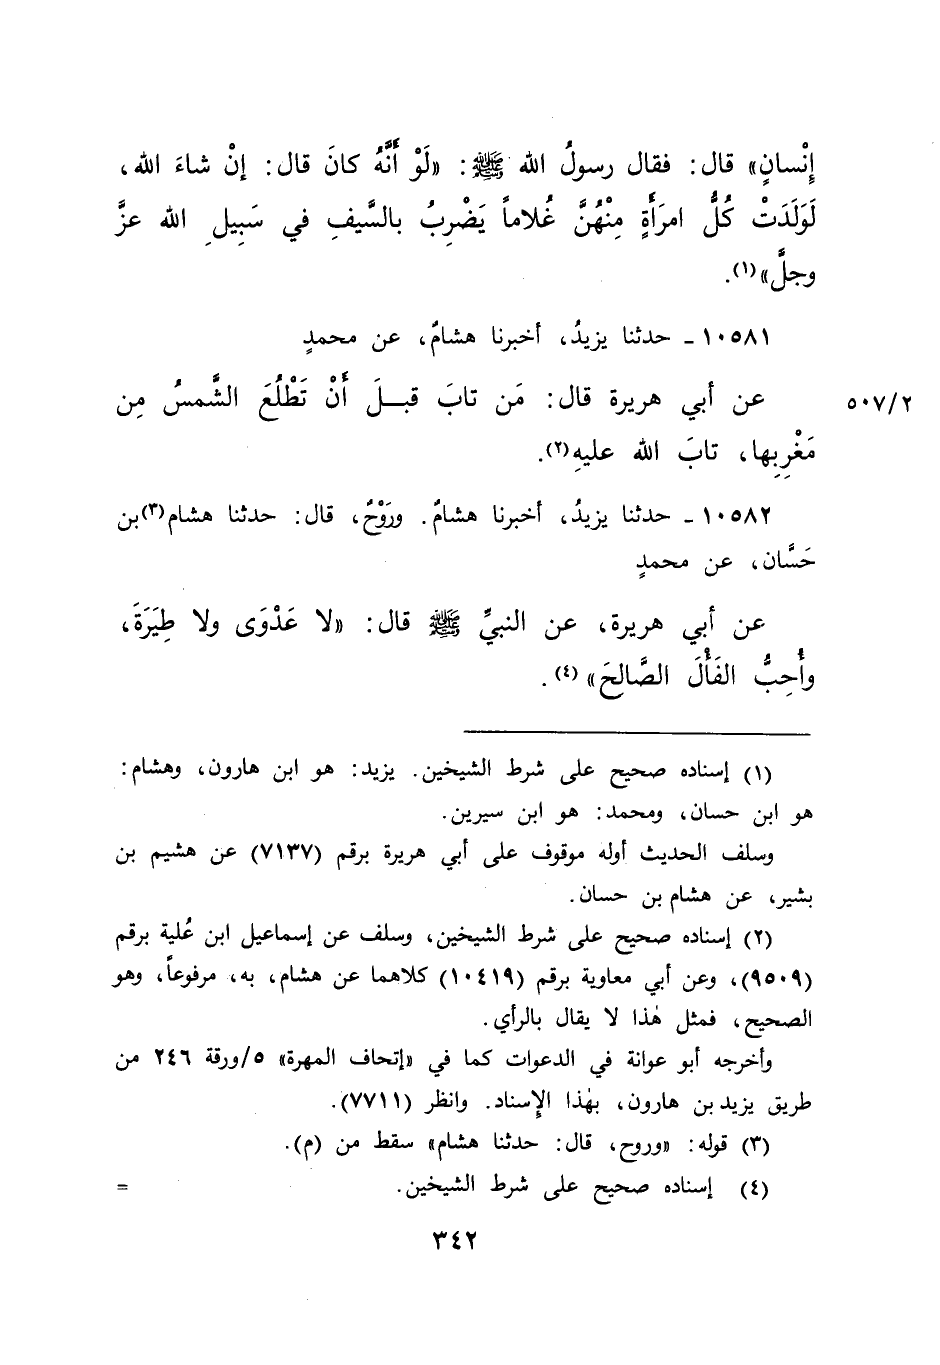 إِنْسانٍ» قال: فقال رسولُ الله ﷺ: «لَوْ أَنَّهُ كانَ قال: إنْ شاءَ الله،
لَوَلَدَتْ كُلُّ امرَأَةٍ مِنْهُنَّ غُلاماً يَضْرِبُ بالسَّيفِ في سَبِيلِ الله عزَّ
وجلَّ»(١).
١٠٥٨١ - حدثنا يزيدُ، أخبرنا هشامٌ، عن محمدٍ
عن أبي هريرة قال: مَن تابَ قبـلَ أَنْ تَطْلُعَ الشَّمسُ مِن
٥٠٧/٢
مَغْرِبِها، تابَ الله عليهِ(٢).
١٠٥٨٢ - حدثنا يزيدُ، أخبرنا هشامٌ. ورَوْحٌ، قال: حدثنا هشام(٣)بن
حَسَّان، عن محمدٍ
عن أبي هريرة، عن النبيِّ ﷺ قال: «لا عَدْوَى ولا طِيَرَةَ،
وأُحِبُّ الفَأْلَ الصَّالحَ»(٤).
(١) إسناده صحيح على شرط الشيخين. يزيد: هو ابن هارون، وهشام:
هو ابن حسان، ومحمد: هو ابن سيرين.
وسلف الحديث أوله موقوف على أبي هريرة برقم (٧١٣٧) عن هشيم بن
بشير، عن هشام بن حسان.
(٢) إسناده صحيح على شرط الشيخين، وسلف عن إسماعيل ابن عُلية برقم
(٩٥٠٩)، وعن أبي معاوية برقم (١٠٤١٩) كلاهما عن هشام، به، مرفوعاً، وهو
الصحيح، فمثل هٰذا لا يقال بالرأي.
وأخرجه أبو عوانة في الدعوات كما في «إتحاف المهرة» ٥/ورقة ٢٤٦ من
طريق يزيد بن هارون، بهٰذا الإسناد. وانظر (٧٧١١).
(٣) قوله: «وروح، قال: حدثنا هشام» سقط من (م).
(٤) إسناده صحيح على شرط الشيخين. =
٣٤٢